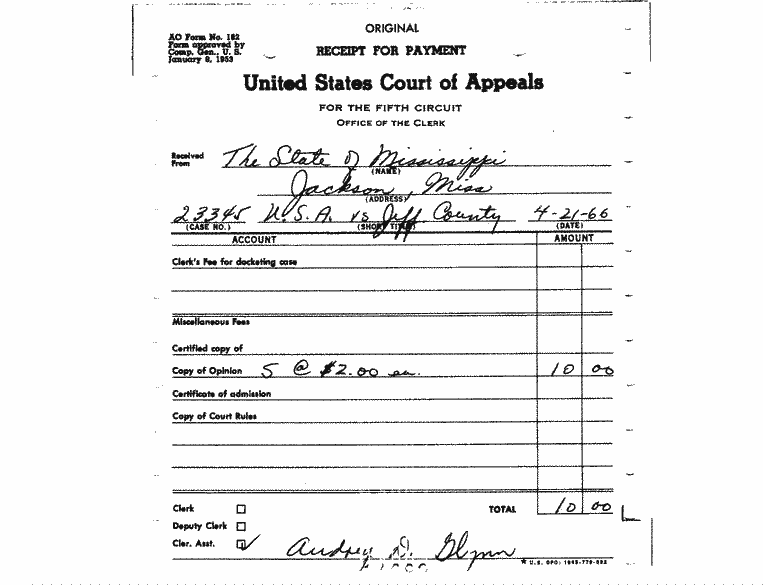 ORIGINAL
AO Form No. 182
Form approved by
Comp. Gen., U. S.
January 9, 1953
RECEIPT FOR PAYMENT
United States Court of Appeals
FOR THE FIFTH CIRCUIT
OFFICE OF THE CLERK
Received From The State of Mississippi
(NAME)
Jackson, Miss
(ADDRESS)
23345 U.S.A. vs Jeff County 4-21-66
(CASE NO.) (SHORT TITLE) (DATE)
ACCOUNT AMOUNT
Clerk's Fee for docketing case
Miscellaneous Fees
Certified copy of
Copy of Opinion 5 @ $2.00 ea. 10 00
Certificate of admission
Copy of Court Rules
Clerk TOTAL 10 00
Deputy Clerk
Cler. Asst. Audrey D. Glynn
U.S. GPO: